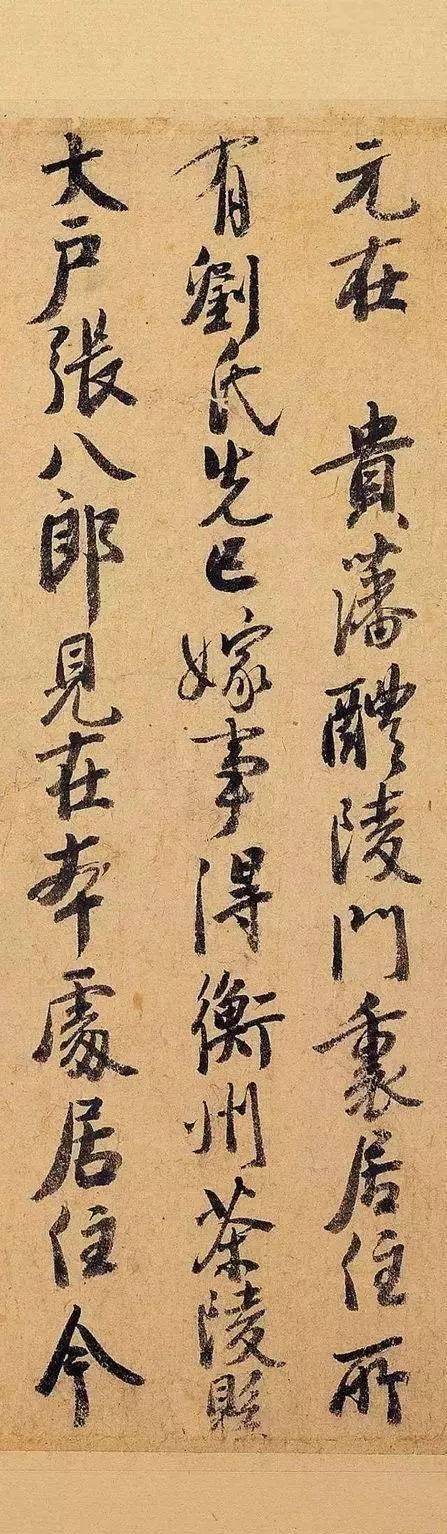 元在 貴藩醴陵門裏居住所
有劉氏先已嫁事得衡州茶陵縣
大户張八郎見在本處居住今